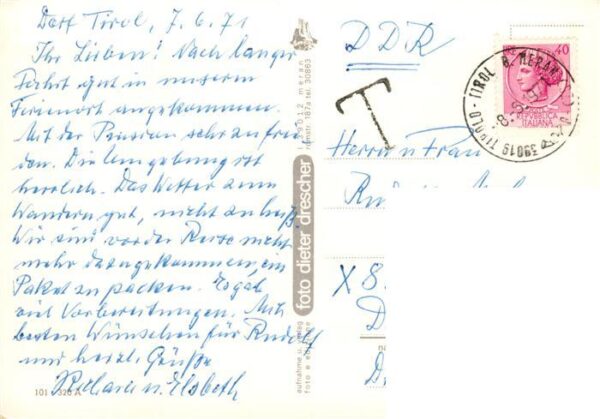 Dorf Tirol, 7.6.71
Ihr Lieben! Nach langer
Fahrt gut in unserem
Ferienort angekommen.
Mit der Pension sehr zufrie-
den. Die Umgebung ist
herrlich. Das Wetter zum
Wandern gut, nicht zu heiß.
Wir sind vor der Reise nicht
mehr dazugekommen, ein
Paket zu packen. Es gab
viel Vorbereitungen. Mit
besten Wünschen für Rudolf
und herzl. Grüße
u. Elsbeth
101 328 A
foto dieter drescher
39012 meran
tel. 30863
aufnahme u. verlag
DDR
T
Herrn u Frau
X 8.
D
D
40
REPVBBLICA
ITALIANA
39019 TIROLO - TIROL B. MERAN